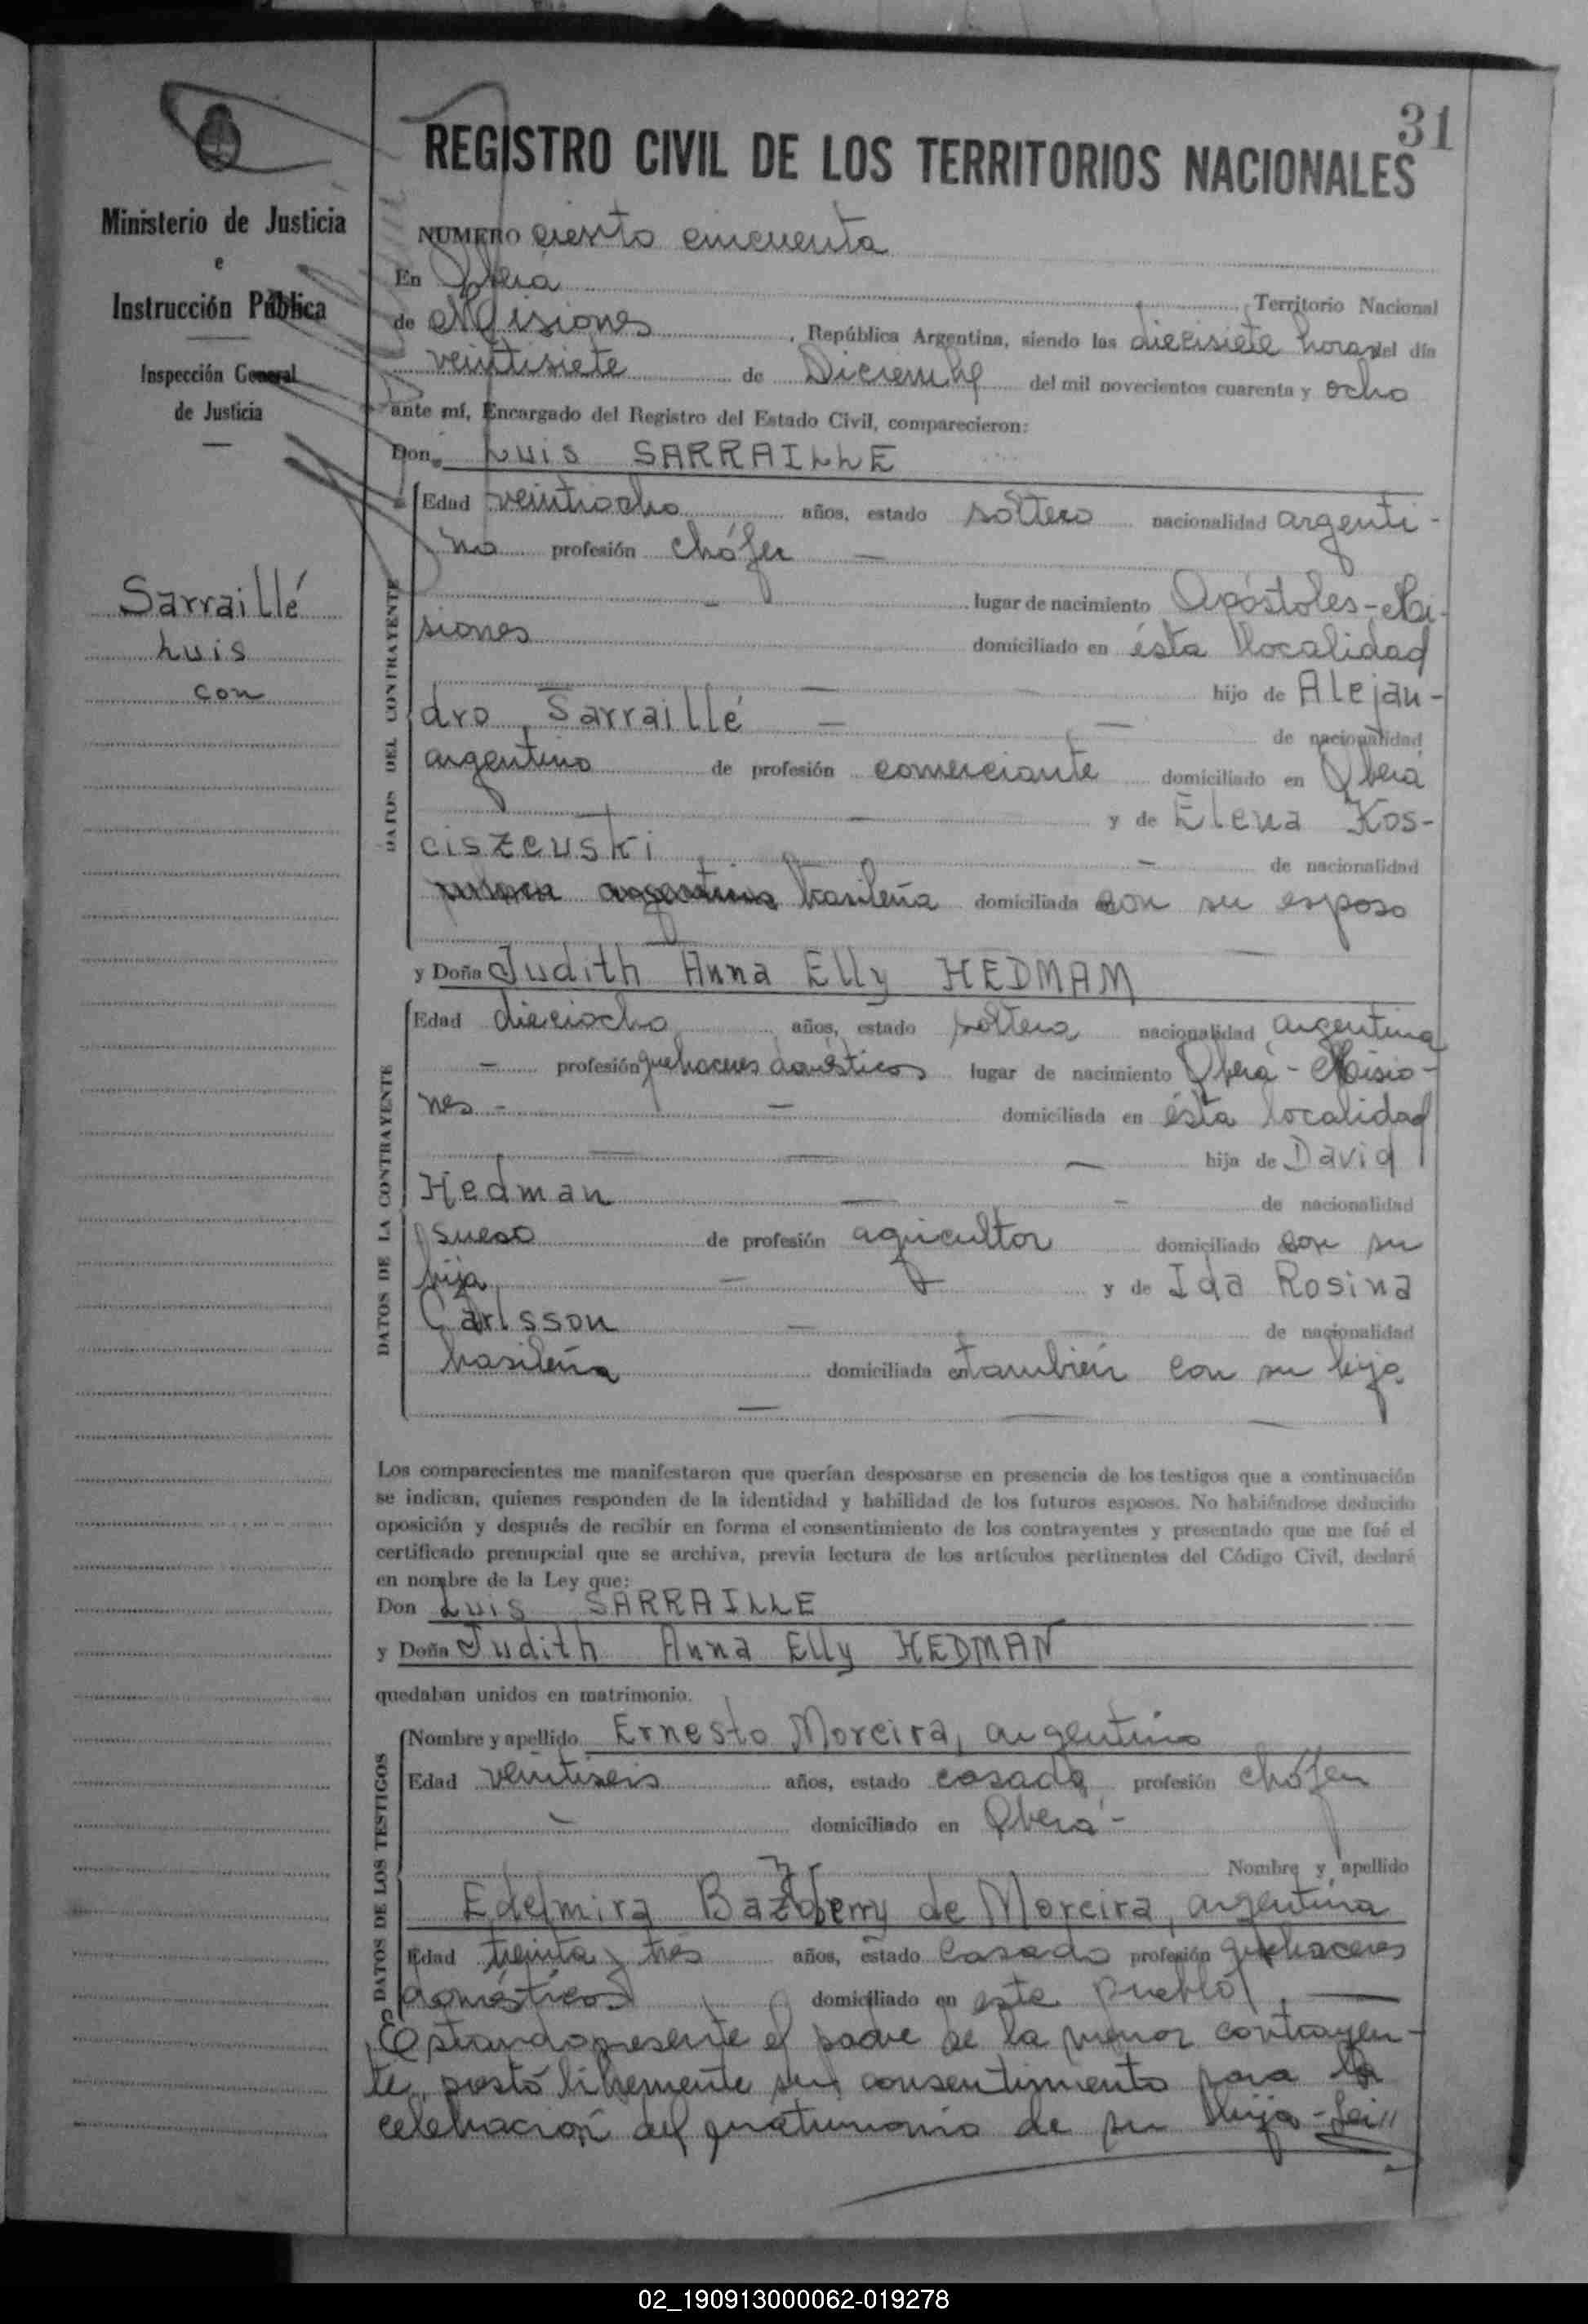 31
REGISTRO CIVIL DE LOS TERRITORIOS NACIONALES
Ministerio de Justicia
e
Instrucción Pública
Inspección General
de Justicia
Sarraillé
Luis
con
NUMERO ciento cincuenta
En Oberá Territorio Nacional
de Misiones, República Argentina, siendo las diecisiete horas del día
veintisiete de Diciembre del mil novecientos cuarenta y ocho
ante mí, Encargado del Registro del Estado Civil, comparecieron:
Don Luis SARRAILLE
DATOS DEL CONTRAYENTE
Edad veintiocho años, estado soltero nacionalidad argenti-
no profesión chófer —
— lugar de nacimiento Apóstoles-Mi-
siones domiciliado en ésta localidad
— hijo de Alejan-
dro Sarraillé — — de nacionalidad
argentino de profesión comerciante domiciliado en Oberá
— y de Elena Kos-
ciszeuski — de nacionalidad
argentina brasileña domiciliada con su esposo
y Doña Judith Anna Elly HEDMAM
DATOS DE LA CONTRAYENTE
Edad dieciocho años, estado soltera nacionalidad argentina
— profesión quehaceres domésticos lugar de nacimiento Oberá - Misio-
nes - — domiciliada en ésta localidad
— — — hija de David
Hedman — - de nacionalidad
sueco de profesión agricultor domiciliado con su
hija — y de Ida Rosina
Carlsson — de nacionalidad
brasileña domiciliada en también con su hija
— — —
Los comparecientes me manifestaron que querían desposarse en presencia de los testigos que a continuación
se indican, quienes responden de la identidad y habilidad de los futuros esposos. No habiéndose deducido
oposición y después de recibir en forma el consentimiento de los contrayentes y presentado que me fué el
certificado prenupcial que se archiva, previa lectura de los artículos pertinentes del Código Civil, declaré
en nombre de la Ley que:
Don Luis SARRAILLE
y Doña Judith Anna Elly HEDMAN
quedaban unidos en matrimonio.
DATOS DE LOS TESTIGOS
Nombre y apellido Ernesto Moreira, argentino
Edad veintiseis años, estado casado profesión chófer
— domiciliado en Oberá -
Nombre y apellido
Edelmira de Moreira, argentina
Edad treinta y tres años, estado casada profesión quehaceres
domésticos domiciliado en este pueblo. —
Estando presente el padre de la menor contrayen-
te, prestó libremente su consentimiento para la
celebración del matrimonio de su hija -
02_190913000062-019278